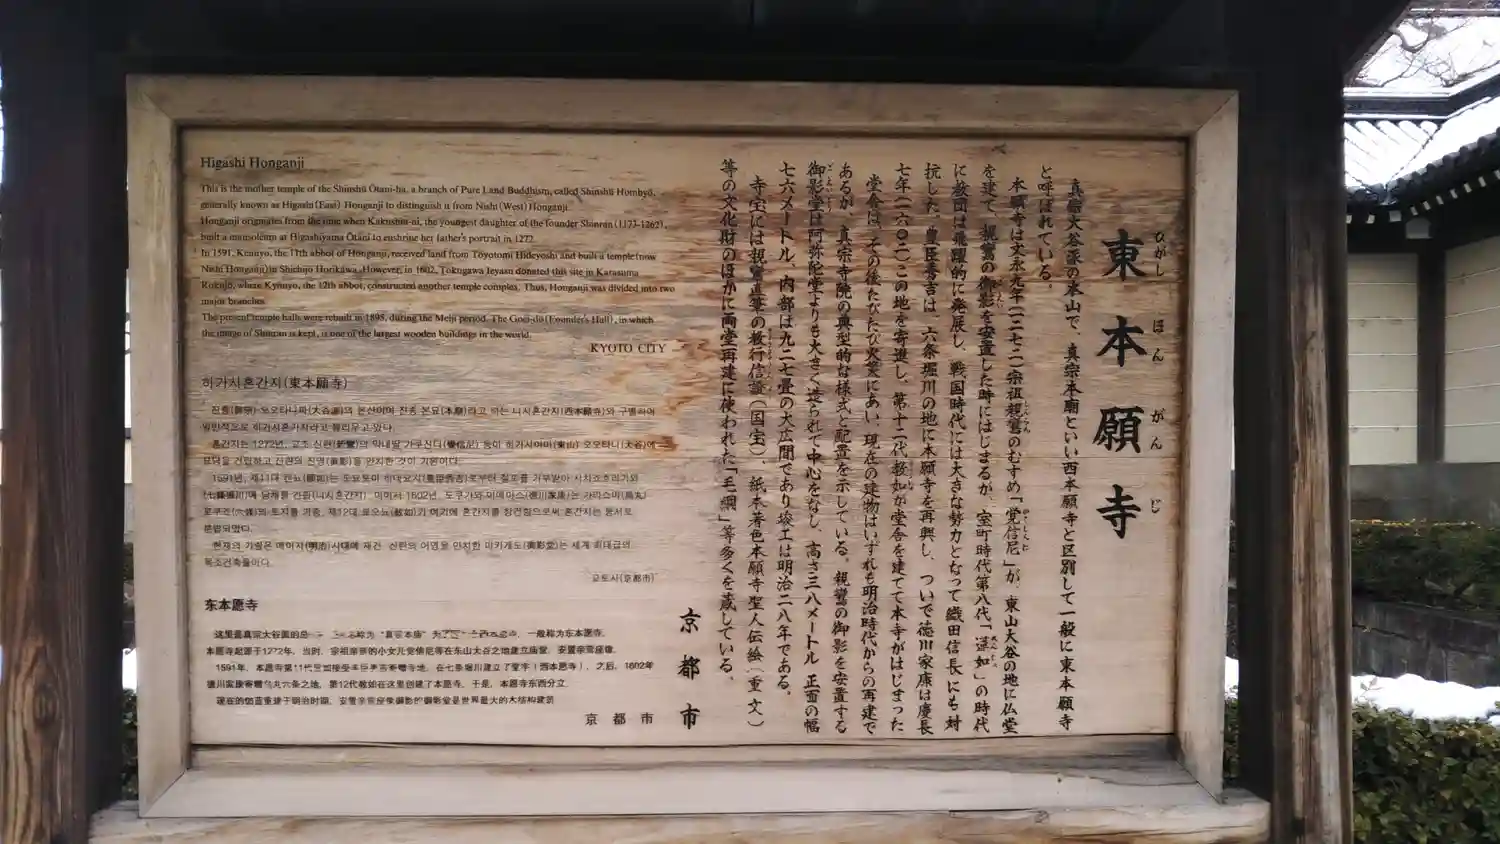 東本願寺
ひがし ほん がん じ
真宗大谷派の本山で、真宗本廟といい西本願寺と区別して一般に東本願寺
と呼ばれている。
本願寺は文永九年(一二七二)宗祖親鸞のむすめ「覚信尼」が、東山大谷の地に仏堂
を建て、親鸞の御影を安置した時にはじまるが、室町時代第八代「蓮如」の時代
に教団は飛躍的に発展し、戦国時代には大きな勢力となって織田信長にも対
抗した。豊臣秀吉は、六条堀川の地に本願寺を再興し、ついで徳川家康は慶長
七年(一六〇二)この地を寄進し、第十二代教如が堂舎を建てて本寺がはじまった
堂舎は、その後たびたび火災にあい、現在の建物はいずれも明治時代からの再建で
あるが、真宗寺院の典型的な様式と配置を示している。親鸞の御影を安置する
御影堂は阿弥陀堂よりも大きく造られて中心をなし、高さ三八メートル 正面の幅
七六メートル、内部は九二七畳の大広間であり竣工は明治二八年である。
寺宝には親鸞直筆の教行信證(国宝)、紙本著色本願寺聖人伝絵(重文)
等の文化財のほかに両堂再建に使われた「毛綱」等多くを蔵している。
京都市
Higashi Honganji
This is the mother temple of the Shinshū Ōtani-ha, a branch of Pure Land Buddhism, called Shinshū Hombyō,
generally known as Higashi(East) Honganji to distinguish it from Nishi(West) Honganji.
Honganji originates from the time when Kakushin-ni, the youngest daughter of the founder Shinran(1173-1262),
built a mausoleum at Higashiyama Ōtani to enshrine her father's portrait in 1272.
In 1591, Kennyo, the 11th abbot of Honganji, received land from Toyotomi Hideyoshi and built a temple(now
Nishi Honganji)in Shichijo Horikawa. However, in 1602, Tokugawa Ieyasu donated this site in Karasuma
Rokujō, where Kyōnyo, the 12th abbot, constructed another temple complex. Thus, Honganji was divided into two
major branches.
The present temple halls were rebuilt in 1895, during the Meiji period. The Goei-dō(Founder's Hall), in which
the image of Shinran is kept, is one of the largest wooden buildings in the world.
KYOTO CITY
히가시혼간지(東本願寺)
진종(眞宗) 오오타니파(大谷派)의 본산이며 진종 본묘(本廟)라고 하는 니시혼간지(西本願寺)와 구별하여
일반적으로 히가시혼간지라고 불리우고 있다.
혼간지는 1272년, 교조 신란(親鸞)의 막내딸 가쿠신니(覺信尼) 등이 히가시야마(東山) 오오타니(大谷)에
묘당을 건립하고 신란의 진영(眞影)을 안치한 것이 기원이다.
1591년, 제11대 켄뇨(顯如)는 도요토미 히데요시(豊臣秀吉)로부터 절터를 기부받아 시치죠호리카와
(七條堀川)에 당재를 건립(니시혼간지). 이어서 1602년, 도쿠가와 이에야스(德川家康)는 카라스마(烏丸)
로쿠죠(六條)의 토지를 기증, 제12대 쿄오뇨(敎如)가 여기에 혼간지를 창건함으로써 혼간지는 동서로
분립되었다.
현재의 가람은 메이지(明治)시대에 재건. 신란의 어영을 안치한 미카게도(御影堂)는 세계 최대급의
목조건축물이다.
교토시(京都市)
东本愿寺
这里是真宗大谷派的 称为“真宗本庙” 一般称为东本愿寺。
本愿寺起源于1272年, 当时, 宗祖亲鸾的小女儿觉信尼等在东山大谷之地建立庙堂, 安置亲鸾座像。
1591年, 本愿寺第11代显如接受丰臣秀吉寄赠寺地, 在七条堀川建立了堂宇(西本愿寺), 之后, 1602年
德川家康寄赠乌丸六条之地, 第12代教如在这里创建了本愿寺, 于是, 本愿寺东西分立.
现在的伽蓝重建于明治时期, 安置亲鸾座像御影的御影堂是世界最大的木结构建筑
京都市